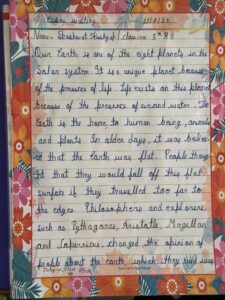 Essay writing
Name:- Class :- 5th
Our Earth is on of the eight planets in the
Solar system. It is a unique planet because
of the presence of life. Life exists on this planet
because of the presence of air and water. The
Earth is the home to human being, animals
and plants. In olden days, it was believ-
ed that the earth was flat. People thoug-
ht that they would fall off this flat
surface if they travelled too far to
the edges. Philosophers and explorers,
such as Pythagoras, Aristotle, Magellan
and Copernicus, changed the opinion of
people about the earth, which they said was